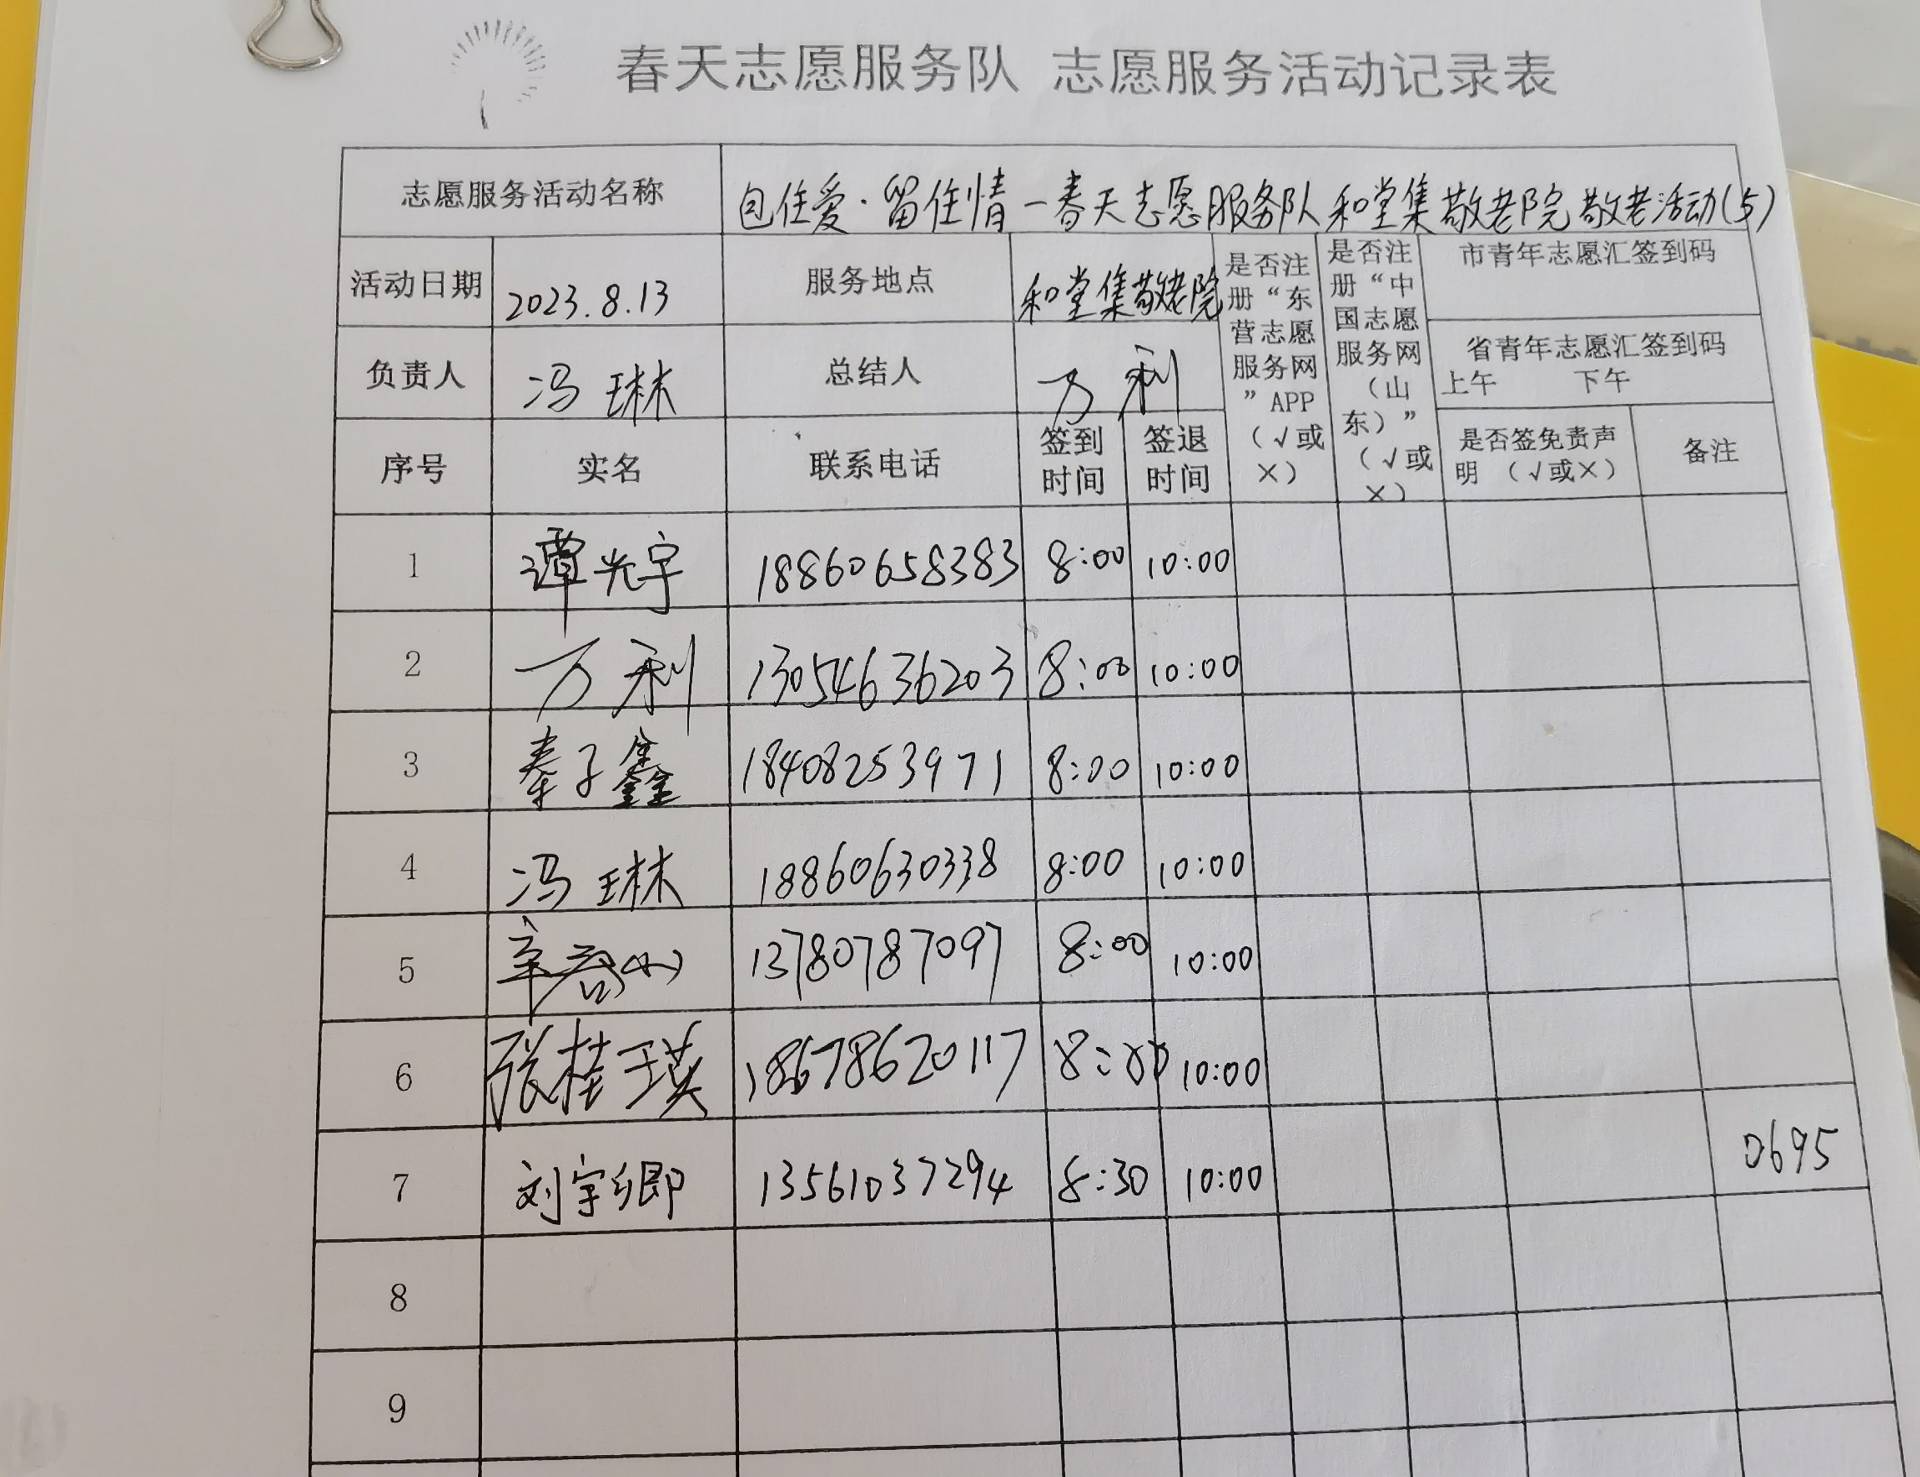 春天志愿服务队 志愿服务活动记录表
志愿服务活动名称 包住爱·留住情—春天志愿服务队和堂集敬老院敬老活动(5)
活动日期 2023.8.13 服务地点 和堂集敬老院 是否注册“东营志愿服务网”APP（√或×） 是否注册“中国志愿服务网（山东）”（√或×） 市青年志愿汇签到码
负责人 冯琳 总结人 万利 省青年志愿汇签到码
上午 下午
序号 实名 联系电话 签到时间 签退时间 是否签免责声明（√或×） 备注
1 谭光宇 18860658383 8:00 10:00
2 万利 13054636203 8:00 10:00
3 秦子鑫 18408253971 8:00 10:00
4 冯琳 18860630338 8:00 10:00
5 13780787097 8:00 10:00
6 张桂瑛 18678620117 8:00 10:00
7 刘宇卿 13561037294 8:30 10:00 0695
8
9